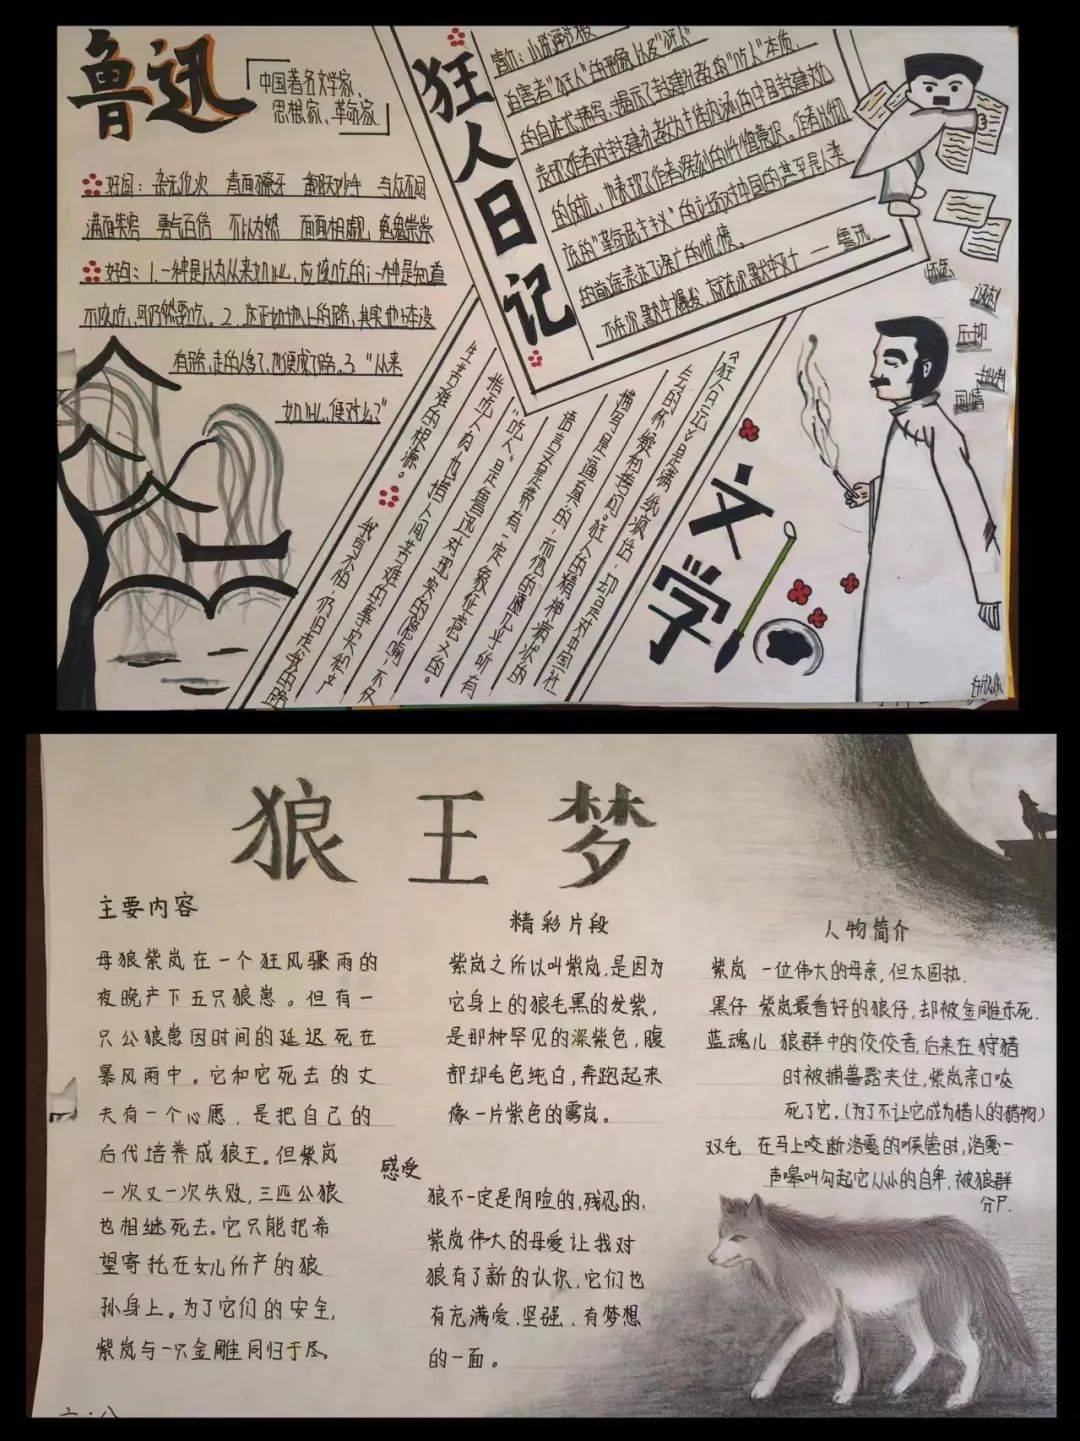 鲁迅
中国著名文学家、
思想家、革命家.
好词：杂无伦次 青面獠牙
与众不同
满面笑容 勇气百倍 不以为然 面面相觑 鬼鬼祟祟
好句：1.一种是以为从来如此，应该吃的；一种是知道
不该吃，可仍然要吃。2.这正如地上的路，其实地上本没
有路，走的人多了，也便成了路。3."从来
如此，便对么？"
狂人日记
迫害者"狂人"的形象以及"狂人"
的自述式描写，揭示了封建礼教的"吃人"本质，
表现了作者对封建礼教为主体内涵的中国封建文化
的反抗，也表现了作者深刻的忏悔意识。作者以彻
底的"革命民主主义"的立场对中国的甚至是人类
的前途表示了深广的忧愤。
不在沉默中爆发，就在沉默中灭亡——鲁迅
《狂人日记》是满纸疯话，却是对中国社
会的怀疑和拷问。狂人的精神病状的
描写是逼真的，而他的
乎所有
语言又是带有一定象征意义的。
"吃人"是鲁迅对现实的
不仅
指吃人肉也指人间苦难的事实和产
生苦难的根源。
我可不怕，仍旧走我的路
文学
压抑
国情
狼王梦
主要内容
母狼紫岚在一个狂风骤雨的
夜晚产下五只狼崽。但有一
只公狼崽因时间的延迟死在
暴风雨中。它和它死去的丈
夫有一个心愿，是把自己的
后代培养成狼王。但紫岚
一次又一次失败，三匹公狼
也相继死去。它只能把希
望寄托在女儿所产的狼
孙身上。为了它们的安全，
紫岚与一只金雕同归于尽。
精彩片段
紫岚之所以叫紫岚，是因为
它身上的狼毛黑的发紫，
是那种罕见的深紫色，腹
部却毛色纯白，奔跑起来
像一片紫色的雾岚。
感受
狼不一定是阴险的，残忍的，
紫岚伟大的母爱让我对
狼有了新的认识，它们也
有充满爱、坚强、有梦想
的一面。
人物简介
紫岚 一位伟大的母亲，但太固执.
黑仔 紫岚最看好的狼仔，却被金雕杀死.
蓝魂儿 狼群中的佼佼者，后来在狩猎
时被捕兽器夹住，紫岚亲口咬
死了它.（为了不让它成为猎人的猎物）
双毛 在马上咬断洛戛的喉管时，洛戛一
声嗥叫勾起它从小的自卑，被狼群
分尸.
六·八